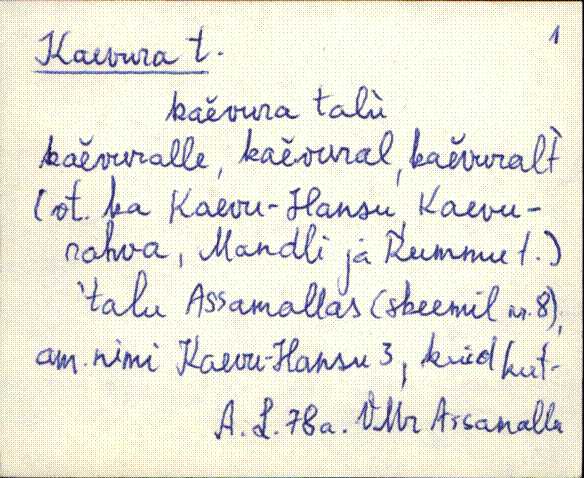 Kaevura t. 1
kaěvura talù
kaěvuralle, kaěvural, kaěvuralt̀
(vt. ka Kaevu-Hansu, Kaevu-
rahva, Mandli ja Rummu t.)
'talu Assamallas (skeemil nr. 8),
am. nimi Kaevu-Hansu 3, kuid kut-
A. L. 78a. VMr Assamalla